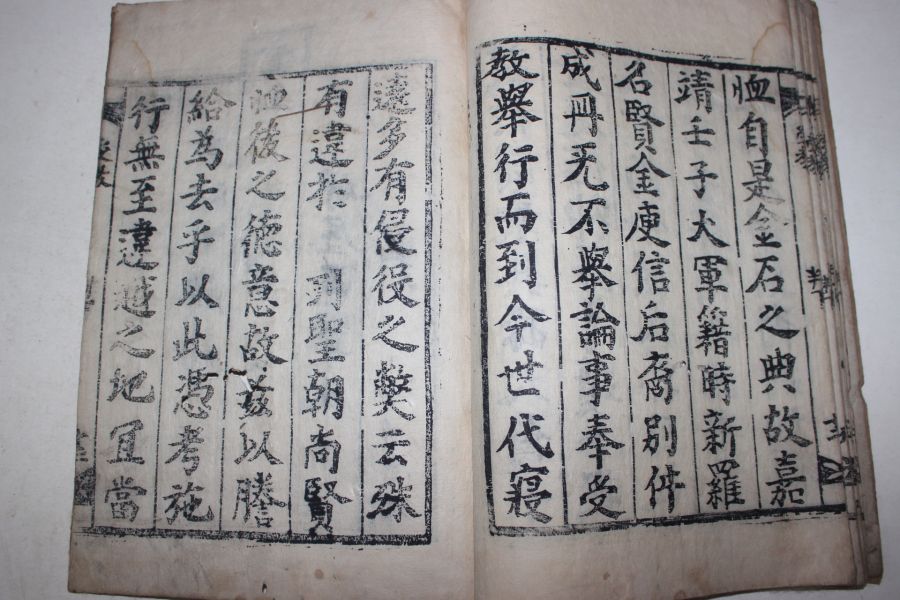 恤自是金石之典故嘉
靖壬子大軍籍時新羅
名賢金庾信后裔別件
成冊无不擧論事奉受
教擧行而到今世代寢
遠多有侵役之獘云殊
有違於 列聖朝尚賢
恤後之德意故玆以謄
給爲去乎以此憑考施
行無至違越之地宜當